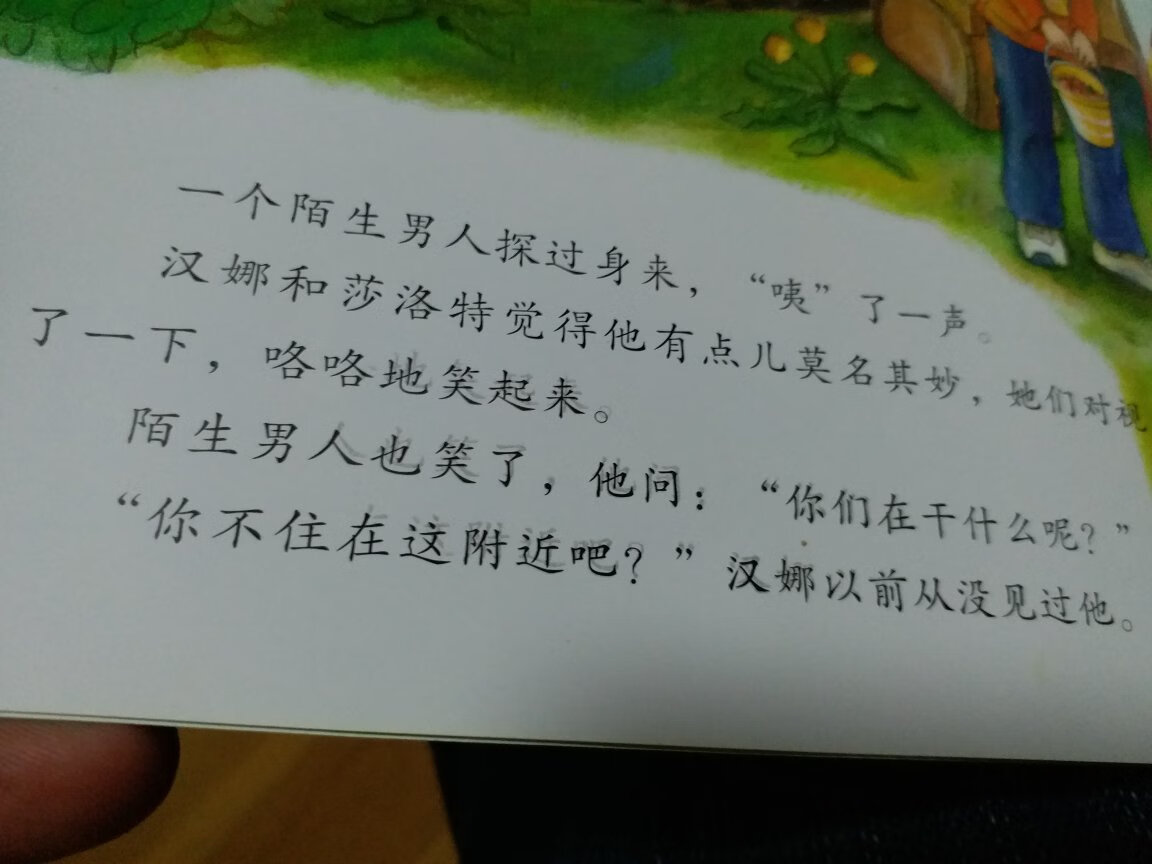 一个陌生男人探过身来，“咦”了一声。
汉娜和莎洛特觉得他有点儿莫名其妙，她们对视
了一下，咯咯地笑起来。
陌生男人也笑了，他问：“你们在干什么呢？”
“你不住在这附近吧？”汉娜以前从没见过他。